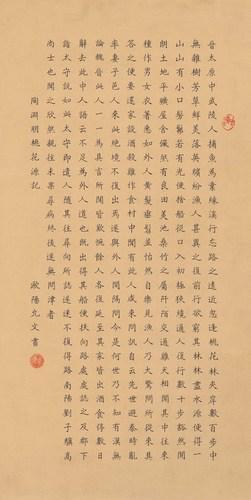 晉太原中武陵人捕魚為業緣溪行忘路之遠近忽逢桃花林夾岸數百步中
無雜樹芳草鮮美落英繽紛漁人甚異之復前行欲窮其林林盡水源便得一
山山有小口髣髴若有光便捨船從口入初極狹纔通人復行數十步豁然開
朗土地平曠屋舍儼然有良田美池桑竹之屬阡陌交通雞犬相聞其中往來
種作男女衣著悉如外人黃髮垂髫並怡然自樂見漁人乃大驚問所從來具
答之便要還家設酒殺雞作食村中聞有此人咸來問訊自云先世避秦時亂
率妻子邑人來此絕境不復出焉遂與外人間隔問今是何世乃不知有漢無
論魏晉此人一一為具言所聞皆歎惋餘人各復延至其家皆出酒食停數日
辭去此中人語云不足為外人道也既出得其船便扶向路處處誌之及郡下
詣太守說如此太守即遣人隨其往尋向所誌遂迷不復得路南陽劉子驥高
尚士也聞之欣然規往未果尋病終後遂無問津者
陶淵明桃花源記
歐陽允文書